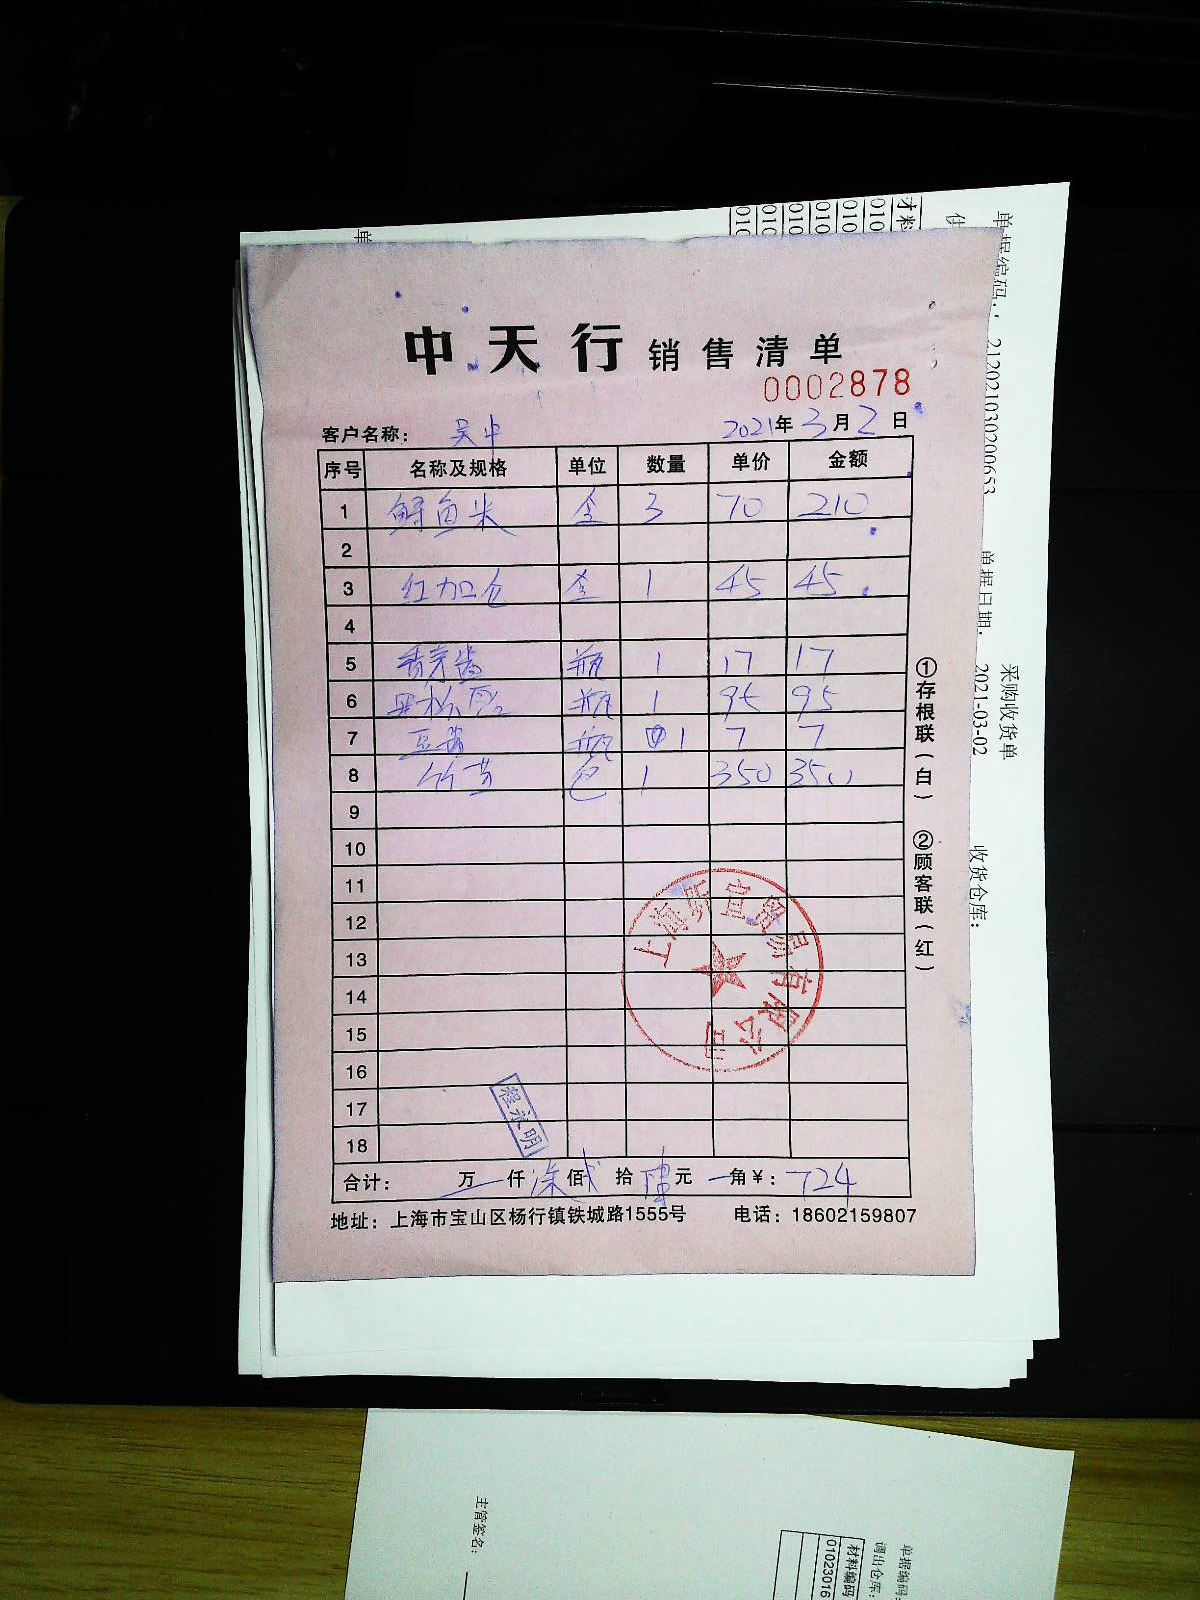 中天行 销售清单
0002878
客户名称： 吴中 2021年3月2日
序号 名称及规格 单位 数量 单价 金额
1 鲟鱼米 盒 3 70 210
2
3 红加仑 盒 1 45 45
4
5 香茅酱 瓶 1 17 17
6 瓶 1 95 95
7 豆酱 瓶 1 7 7
8 竹 包 1 350 350
9
10
11
12
13
14
15
16
17
18
程永明
合计： 万 仟 佰 拾 肆元 角￥：724
地址：上海市宝山区杨行镇铁城路1555号 电话：18602159807
①存根联（白） ②顾客联（红）
贸易有限公司
采购收货单
单据编码： 21202103020065
单据日期： 2021-03-02 收货仓库：
材料
010
010
010
010
010
010
单
主管签名：
单据编码：
调出仓库：
材料编码
01023016